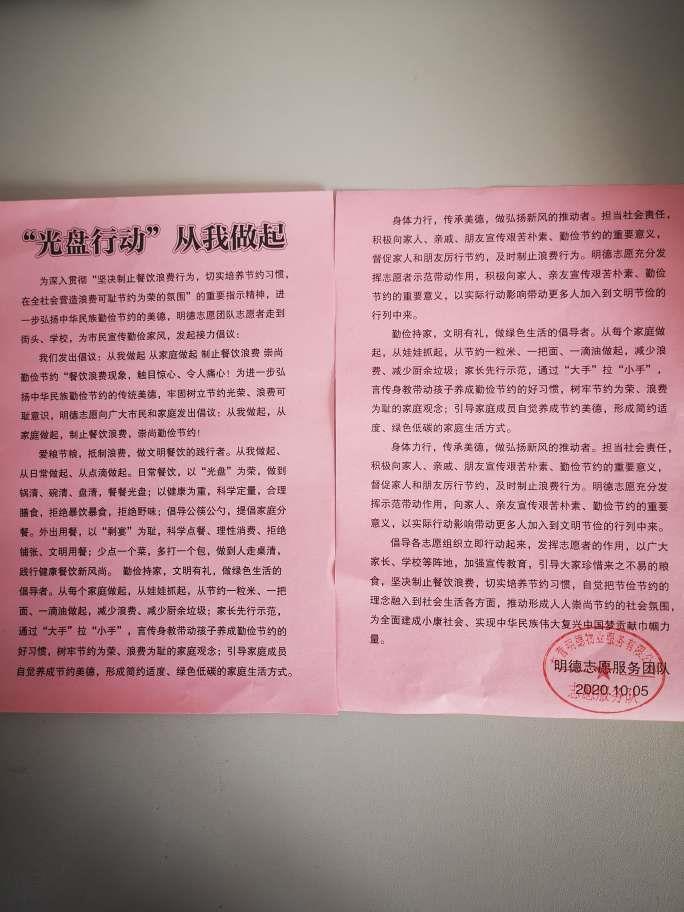 “光盘行动”从我做起
为深入贯彻“坚决制止餐饮浪费行为，切实培养节约习惯，
在全社会营造浪费可耻节约为荣的氛围”的重要指示精神，进
一步弘扬中华民族勤俭节约的美德，明德志愿团队志愿者走到
街头、学校，为市民宣传勤俭家风，发起接力倡议：
我们发出倡议：从我做起 从家庭做起 制止餐饮浪费 崇尚
勤俭节约“餐饮浪费现象，触目惊心、令人痛心！为进一步弘
扬中华民族勤俭节约的传统美德，牢固树立节约光荣、浪费可
耻意识，明德志愿向广大市民和家庭发出倡议：从我做起，从
家庭做起，制止餐饮浪费，崇尚勤俭节约！
爱粮节粮，抵制浪费，做文明餐饮的践行者。从我做起、
从日常做起、从点滴做起。日常餐饮，以“光盘”为荣，做到
锅清、碗清、盘清，餐餐光盘；以健康为重，科学定量，合理
膳食，拒绝暴饮暴食，拒绝野味；倡导公筷公勺，提倡家庭分
餐。外出用餐，以“剩宴”为耻，科学点餐、理性消费、拒绝
铺张、文明用餐；少点一个菜，多打一个包，做到人走桌清，
践行健康餐饮新风尚。 勤俭持家，文明有礼，做绿色生活的
倡导者。从每个家庭做起，从娃娃抓起，从节约一粒米、一把
面、一滴油做起，减少浪费、减少厨余垃圾；家长先行示范，
通过“大手”拉“小手”，言传身教带动孩子养成勤俭节约的
好习惯，树牢节约为荣、浪费为耻的家庭观念；引导家庭成员
自觉养成节约美德，形成简约适度、绿色低碳的家庭生活方式。
身体力行，传承美德，做弘扬新风的推动者。担当社会责任，
积极向家人、亲戚、朋友宣传艰苦朴素、勤俭节约的重要意义，
督促家人和朋友厉行节约，及时制止浪费行为。明德志愿充分发
挥志愿者示范带动作用，积极向家人、亲友宣传艰苦朴素、勤俭
节约的重要意义，以实际行动影响带动更多人加入到文明节俭的
行列中来。
勤俭持家，文明有礼，做绿色生活的倡导者。从每个家庭做
起，从娃娃抓起，从节约一粒米、一把面、一滴油做起，减少浪
费、减少厨余垃圾；家长先行示范，通过“大手”拉“小手”，
言传身教带动孩子养成勤俭节约的好习惯，树牢节约为荣、浪费
为耻的家庭观念；引导家庭成员自觉养成节约美德，形成简约适
度、绿色低碳的家庭生活方式。
身体力行，传承美德，做弘扬新风的推动者。担当社会责任，
积极向家人、亲戚、朋友宣传艰苦朴素、勤俭节约的重要意义，
督促家人和朋友厉行节约，及时制止浪费行为。明德志愿充分发
挥示范带动作用，向家人、亲友宣传艰苦朴素、勤俭节约的重要
意义，以实际行动影响带动更多人加入到文明节俭的行列中来。
倡导各志愿组织立即行动起来，发挥志愿者的作用，以广大
家长、学校等阵地，加强宣传教育，引导大家珍惜来之不易的粮
食，坚决制止餐饮浪费，切实培养节约习惯，自觉把节俭节约的
理念融入到社会生活各方面，推动形成人人崇尚节约的社会氛围，
为全面建成小康社会、实现中华民族伟大复兴中国梦贡献巾帼力
量。
明德物业服务有限公
明德志愿服务团队
2020.10.05
志愿服务队